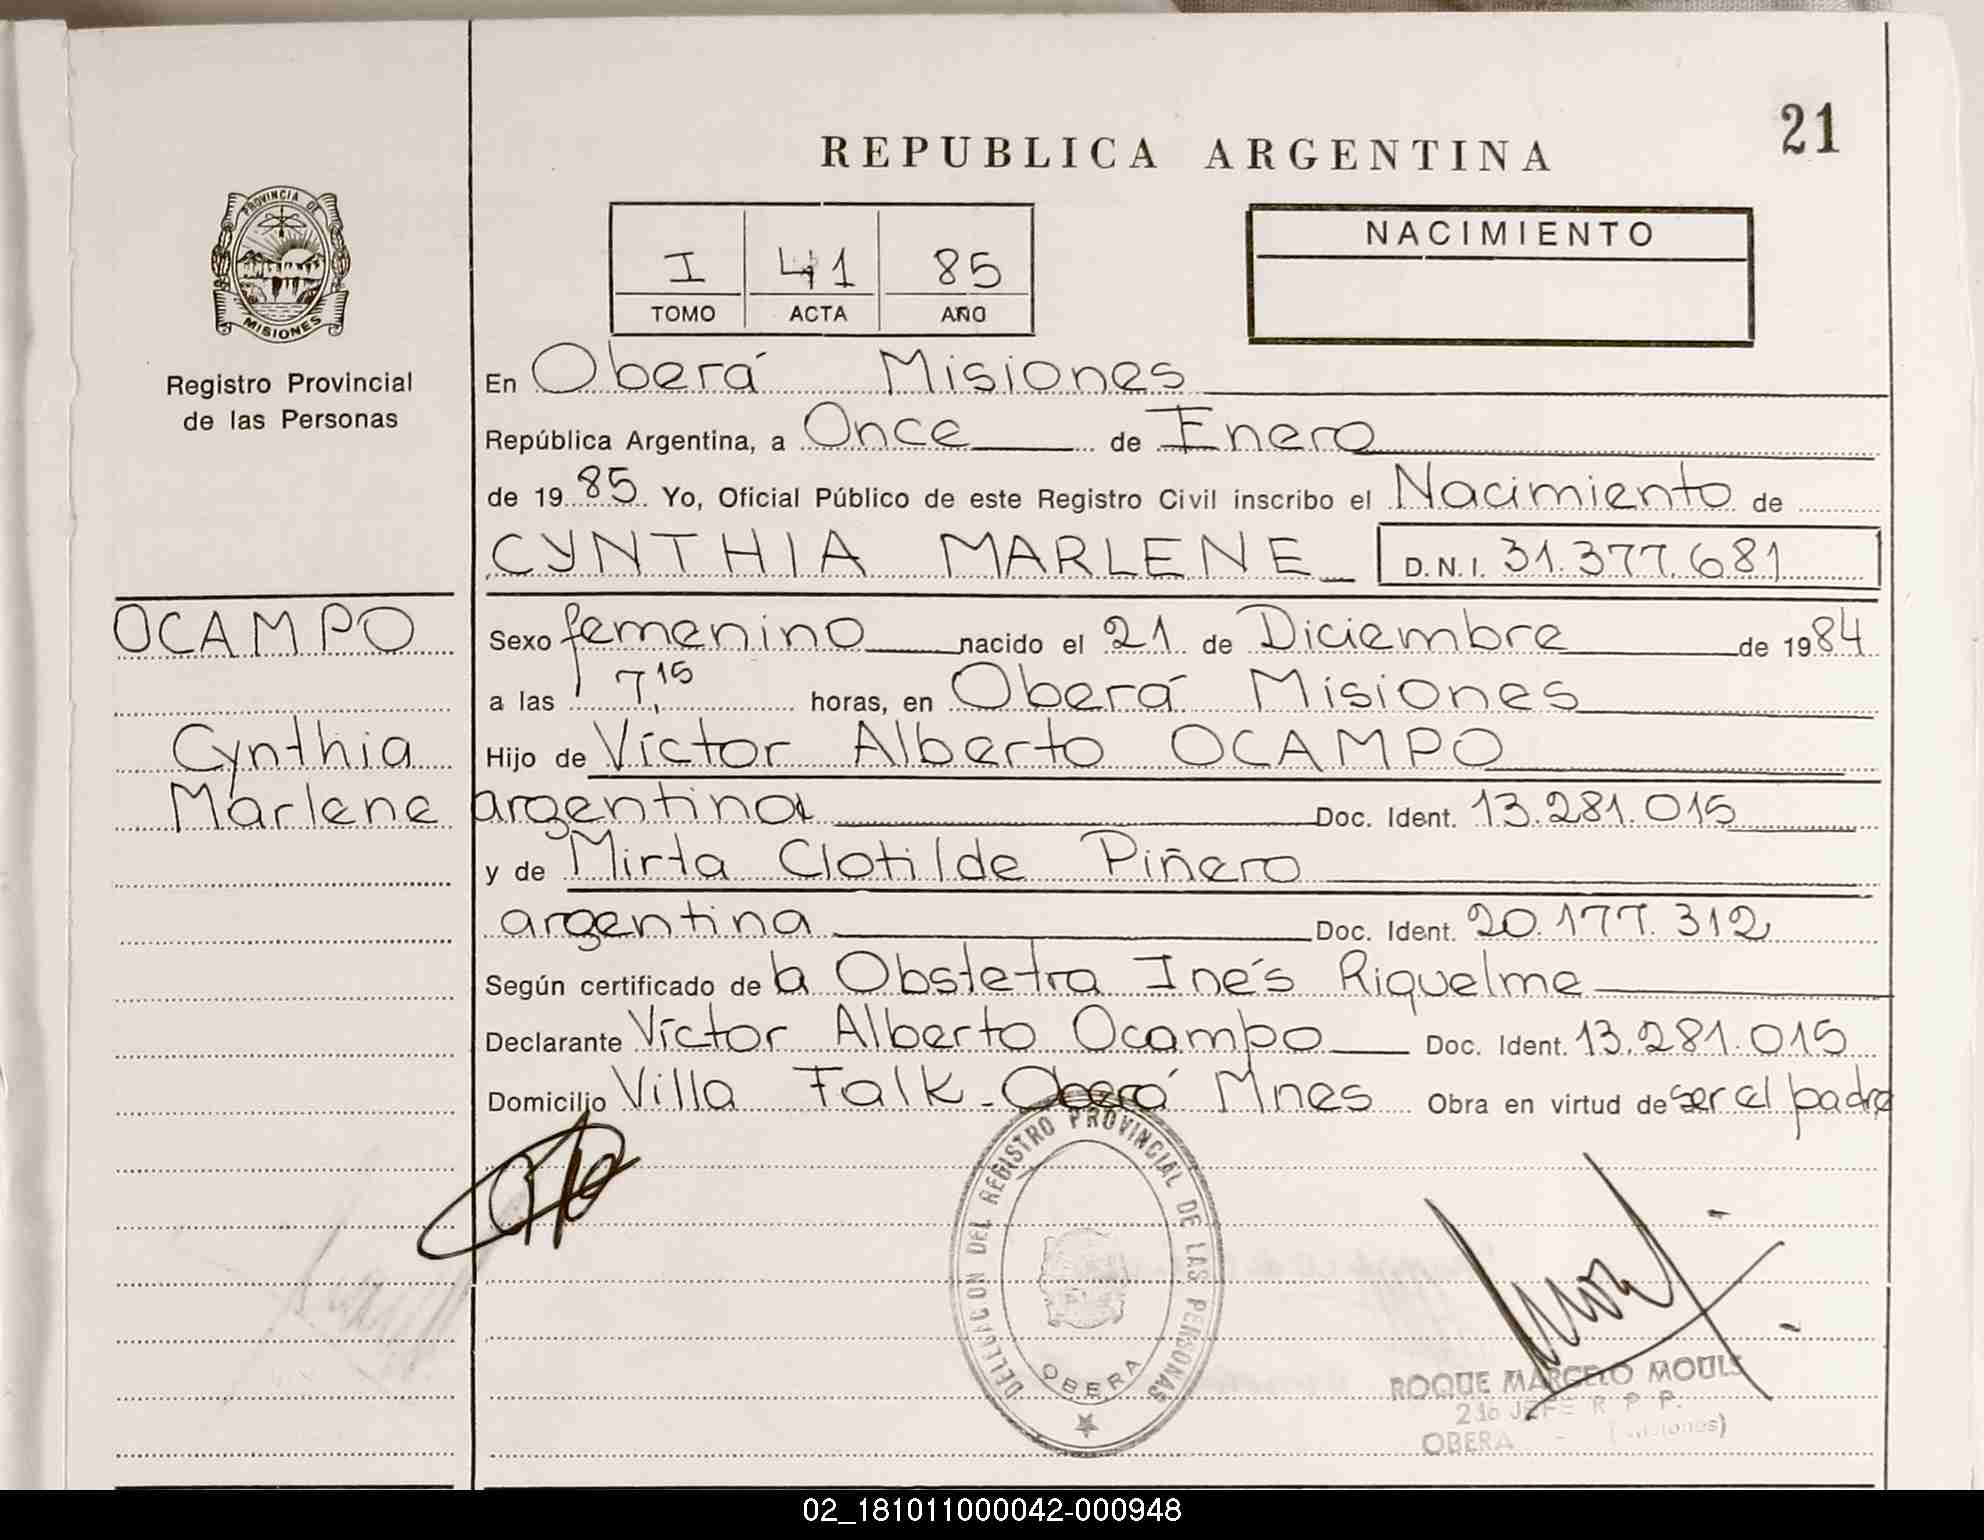 21
REPUBLICA ARGENTINA
PROVINCIA DE
MISIONES
Registro Provincial
de las Personas
I 41 85
TOMO ACTA AÑO
NACIMIENTO
En Oberá Misiones
República Argentina, a Once de Enero
de 1985 Yo, Oficial Público de este Registro Civil inscribo el Nacimiento de
CYNTHIA MARLENE D.N.I. 31.377.681
OCAMPO
Cynthia
Marlene
Sexo femenino nacido el 21 de Diciembre de 1984
a las 7,15 horas, en Oberá Misiones
Hijo de Víctor Alberto OCAMPO
argentina Doc. Ident. 13.281.015
y de Mirta Clotilde Piñero
argentina Doc. Ident. 20.177.312
Según certificado de la Obstetra Inés Riquelme
Declarante Víctor Alberto Ocampo Doc. Ident. 13.281.015
Domicilio Villa Falk - Oberá Mnes Obra en virtud de ser el padre
DELEGACION DEL REGISTRO PROVINCIAL DE LAS PERSONAS
OBERA
ROQUE MARCELO MOULS
2do JEFE R. P. P.
OBERA - (Misiones)
02_181011000042-000948